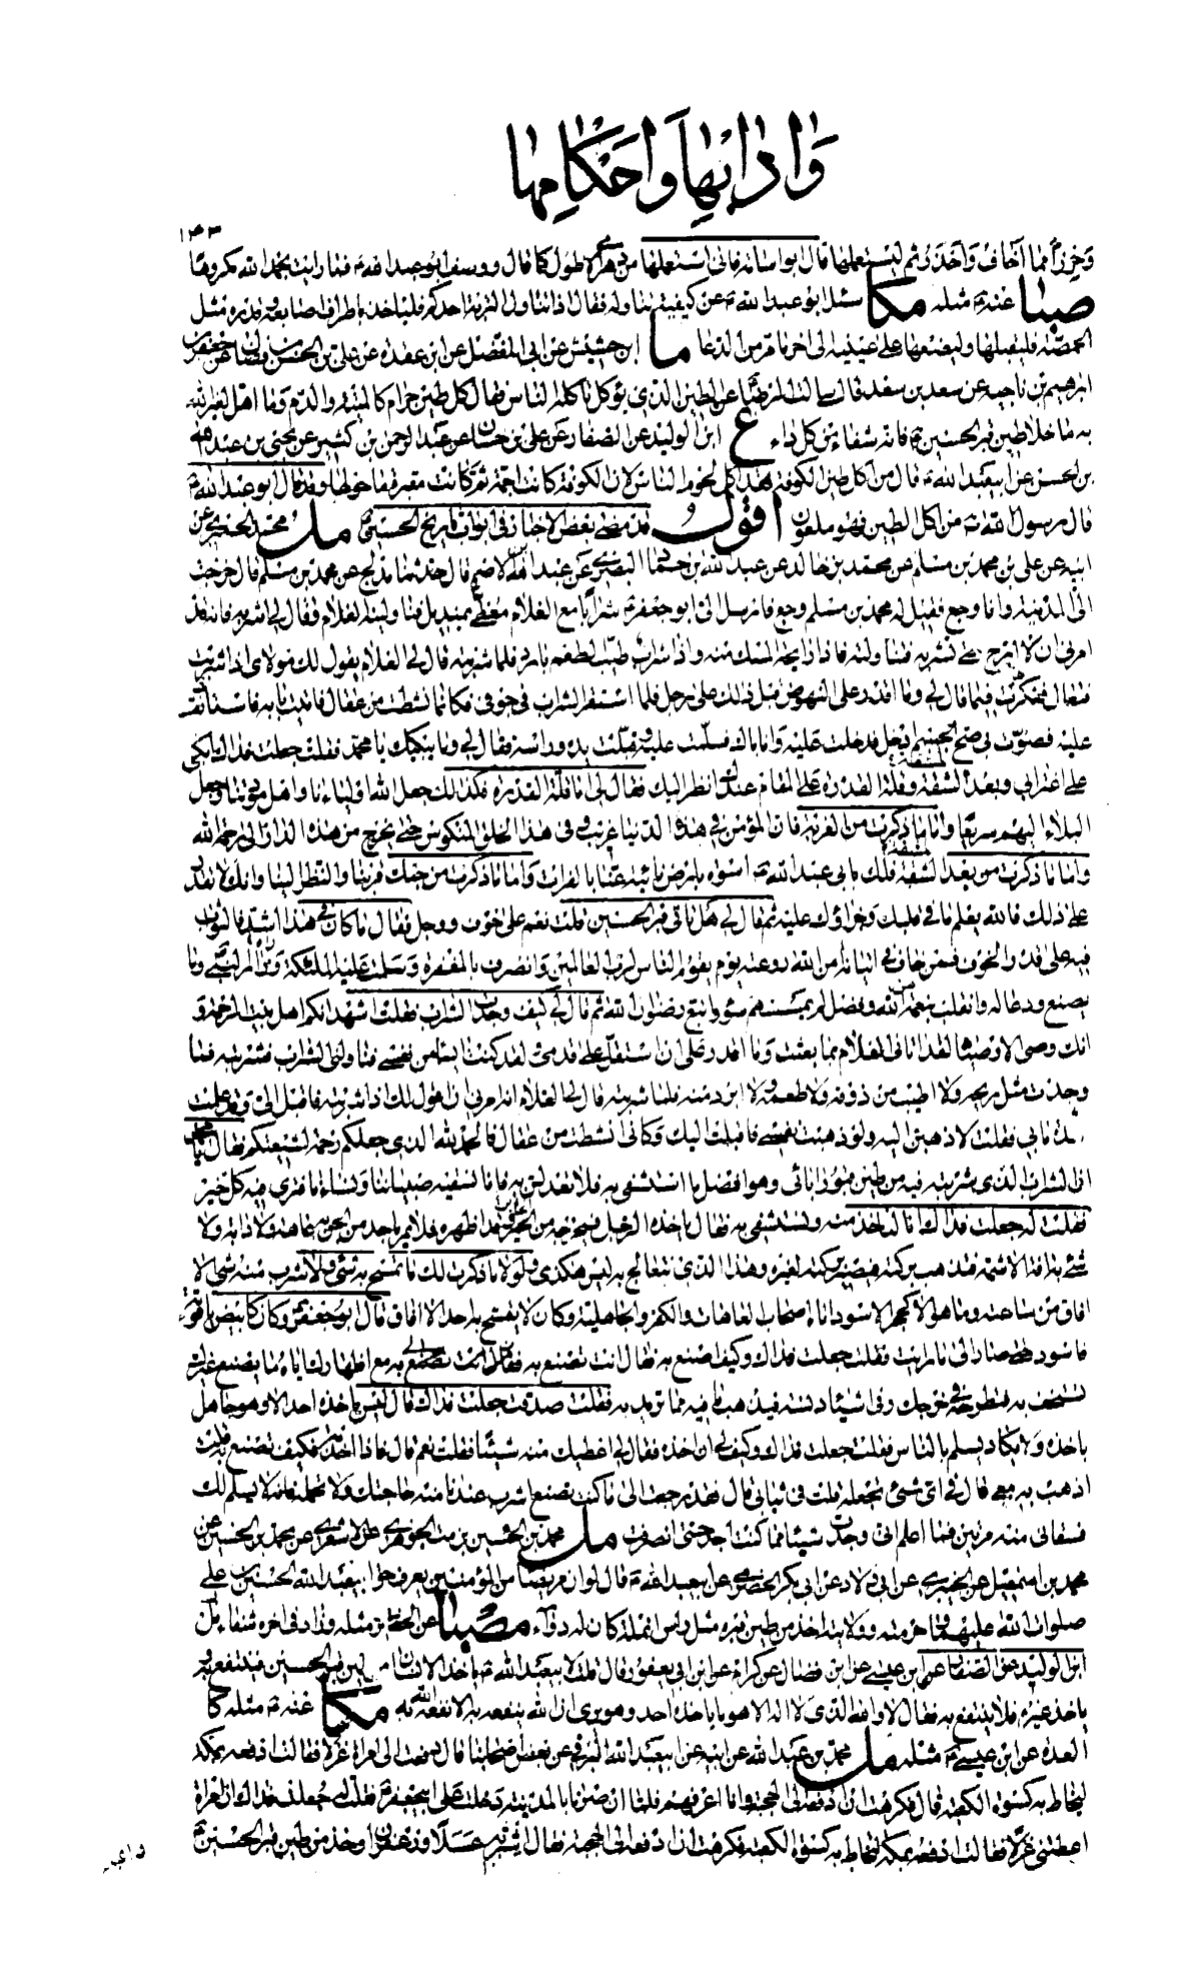 وآدابها وأحكامها
١٤٣
وحرزا مما أخاف وأحذر ثم ليستعملها قال أبو أسامة فإني استعملتها من دهري الأطول كما قال ووصف أبو عبد الله ع فما رأيت بحمد الله مكروها
صبا عنه ع مثله مكا سئل أبو عبد الله ع عن كيفية تناوله فقال إذا تناول التربة أحدكم فليأخذ بأطراف أصابعه وقدره مثل
الحمصة فليقبلها وليضعها على عينيه إلى آخر ما مر من الدعا ما ابن حشيش عن أبي المفضل عن ابن عقدة عن علي بن الحسن بن فضال عن جعفر بن
ابرهيم بن ناجية عن سعد بن سعد قال سالت الرضا ع عن الطين الذي يؤكل تاكله الناس فقال كل طين حرام كالميتة والدم وما اهل لغير الله
به ما خلا طين قبر الحسين ع فانه شفاء من كل داء ع ابن الوليد عن الصفار عن علي بن حسان عن عبد الرحمن بن كثير عن يحيى بن عبد الله
بن الحسن عن ابيعبد الله ع قال من اكل طين الكوفة فقد اكل لحوم الناس لان الكوفة كانت اجمة ثم كانت مقبرة ما حولها وقد قال ابو عبد الله ع
قال رسول الله ص من اكل الطين فهو ملعون اقول قد مضى بعض الاخبار في ابواب تاريخ الحسين ع مل محمد الحميري عن
ابيه عن علي بن محمد بن سالم عن محمد بن خالد عن عبد الله بن حماد البصري عن عبد الله الاصم قال حدثنا مدلج عن محمد بن مسلم قال خرجت
الى المدينة وانا وجع فقيل له محمد بن مسلم وجع فارسل الى ابو جعفر ع شرابا مع الغلام مغطى بمنديل فناولنيه الغلام وقال لي اشربه فانه قد
امرني ان لا ابرح حتى تشربه فتناولته فاذا رايحة المسك منه واذا شراب طيب الطعم بارد فلما شربته قال لي الغلام يقول لك مولاي اذا شربت
فتعال ففكرت فيما قال لي وما اقدر على النهوض قبل ذلك على رجل فلما استقر الشراب في جوفي فكانما نشطت من عقال فاتيت بابه فاستاذنت
عليه فصوت بي صح الجسم ادخل فدخلت عليه وانا باك فسلمت عليه وقبلت يده وراسه فقال لي وما يبكيك يا محمد فقلت جعلت فداك ابكي
على اغترابي وبعد الشقة وقلة القدرة على المقام عندك انظر اليك فقال لي اما قلة القدرة فكذلك جعل الله اولياءنا واهل مودتنا وجعل
البلاء اليهم سريعا واما ما ذكرت من الغربة فان المؤمن في هذه الدنيا غريب وفي هذا الخلق المنكوس حتى يخرج من هذه الدار الى رحمة الله
واما ما ذكرت من بعد الشقة فلك بابي عبد الله ع اسوة بارض نائية عنا بالفرات واما ما ذكرت من حبك قربنا والنظر الينا وانك لا تقدر
على ذلك فالله يعلم ما في قلبك وجزاؤك عليه ثم قال لي هل تاتي قبر الحسين قلت نعم على خوف ووجل فقال ما كان في هذا اشد فالثواب
فيه على قدر الخوف فمن خاف في اتيانه امن الله روعته يوم يقوم الناس لرب العالمين وانصرف بالمغفرة وسلمت عليه الملئكة وزاره النبي وما
يصنع ودعا له وانقلب بنعمة من الله وفضل لم يمسسهم سوء واتبع رضوان الله ثم قال لي كيف وجدت الشراب فقلت اشهد انكم اهل بيت الرحمة و
انك وصي الاوصياء لقد اتاني الغلام بما بعثت وما اقدر على ان استقل على قدمي ولقد كنت ايسا من نفسي فناولني الشراب فشربته فما
وجدت مثل ريحه ولا اطيب من ذوقه ولا طعمه ولا ابرد منه فلما شربته قال لي الغلام انه امرني ان اقول لك اذا شربته فاقبل الي وقد علمت
شدة ما بي فقلت لاذهبن اليه ولو ذهبت نفسي فاقبلت اليك وكاني نشطت من عقال فالحمد لله الذي جعلكم رحمة لشيعتكم فقال يا محمد
ان الشراب الذي شربته فيه من طين قبور ابائي وهو افضل ما استشفي به فلا تعدلن به فانا نسقيه صبياننا ونساءنا فنرى فيه كل خير
فقلت له جعلت فداك انا لناخذ منه ونستشفي به فقال ياخذه الرجل فيخرجه من الحير وقد اظهره فلا يمر باحد من الجن به عاهة ولا دابة ولا
شيء به افة الا شمه فتذهب بركته فيصير بركته لغيره وهذا الذي نتعالج به ليس هكذى ولولا ما ذكرت لك ما تمسح به شيء ولا شرب منه شيء الا
افاق من ساعته وما هو الا كحجر الاسود اتاه اصحاب العاهات والكفر والجاهلية وكان لا يتمسح به احد الا افاق قال ابو جعفر ع وكان كابيض ياقوتة
فاسود حتى صار الى ما رايت فقلت جعلت فداك وكيف اصنع به فقال انت تصنع به مع اظهارك اياه ما يصنع غيرك
تستخف به فتطرحه في خرجك وفي اشياء دنسة فيذهب ما فيه مما تريد به فقلت صدقت جعلت فداك قال ليس ياخذه احد الا وهو جاهل
باخذه ولا يكاد يسلم بالناس فقلت جعلت فداك وكيف لي ان اخذه فقال لي اعطيك منه شيئا فقلت نعم قال فاذا اخذته فكيف تصنع به قلت
اذهب به معي قال في اي شيء تجعله قلت في ثيابي قال فقد رجعت الى ما كنت تصنع اشرب عندنا منه حاجتك ولا تحمله فانه لا يسلم لك
فسقاني منه مرتين فما اعلم اني وجدت شيئا مما كنت اجد حتى انصرفت مل محمد بن الحسين بن مت الجوهري عن الاشعري عن محمد بن الحسين عن
محمد بن اسمعيل عن الخيبري عن ابي ولاد عن ابي بكر الحضرمي عن ابيعبد الله ع قال لو ان مريضا من المؤمنين يعرف حق ابيعبد الله الحسين بن علي
صلوات الله عليهما وحرمته وولايته اخذ من طين قبره مثل راس انملة كان له دواء مصبا عن الحضرمي مثله وزاد في اخره شفاء مل
ابن الوليد عن الصفار عن ابن عيسى عن ابن فضال عن كرام عن ابن ابي يعفور قال قلت لابيعبد الله ع ياخذ الانسان من طين قبر الحسين فينتفع به
ياخذ غيره فلا ينتفع به فقال لا والله الذي لا اله الا هو ما ياخذه احد وهو يرى ان الله ينفعه به الا نفعه الله به مكا عنه ع مثله كا
العدة عن ابن عيسى ع مثله مل محمد بن عبد الله عن ابيه عن ابيعبد الله البرقي عن بعض اصحابنا قال دفعت الى امراة غزلا فقالت ادفعه بمكة
ليخاط به كسوة الكعبة قال فكرهت ان ادفعه الى الحجبة وانا اعرفهم فلما ان صرنا بالمدينة دخلت على ابيجعفر ع فقلت له جعلت فداك ان امراة
اعطتني غزلا فقالت ادفعه بمكة ليخاط به كسوة الكعبة فكرهت ان ادفعه الى الحجبة فقال اشتر به عسلا وزعفران وخذ من طين قبر الحسين ع